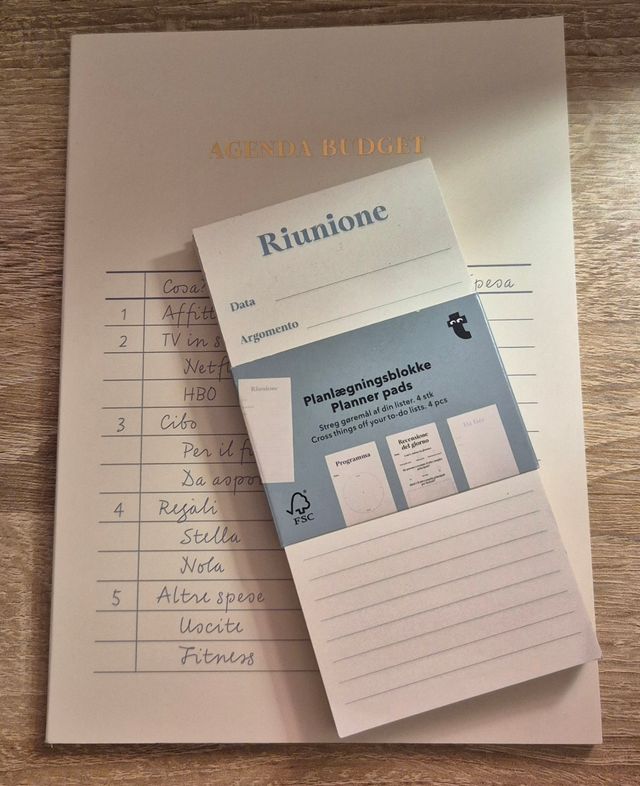 AGENDA BUDGET
Cosa?
1 Affitt
2 TV in s
Netfl
HBO
3 Cibo
Per il fu
Da aspor
4 Regali
Stella
Nola
5 Altre spese
Uscite
Fitness
pesa
Riunione
Data
Argomento
Planlægningsblokke
Planner pads
Streg gøremål af din lister. 4 stk
Cross things off your to-do lists. 4 pcs
Riunione
Programma
Recensione
del giorno
Da fare
FSC